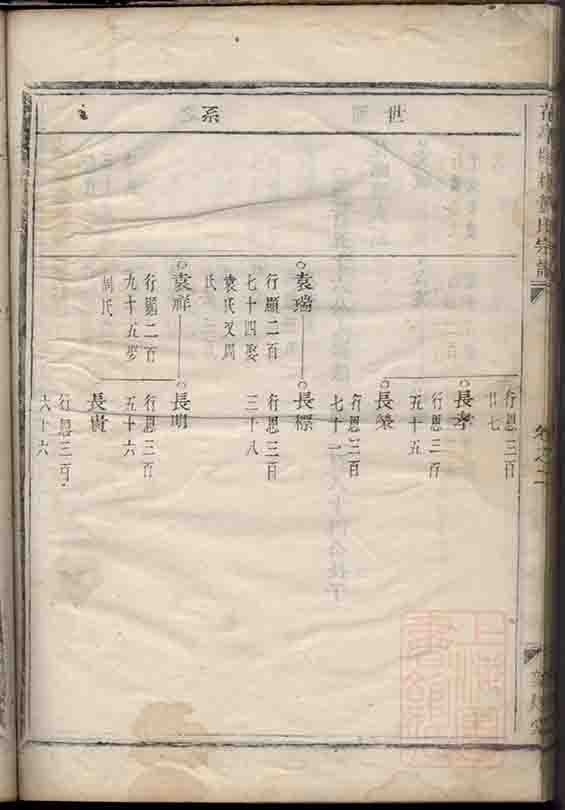 世
系
行恩三百
廿七
長孝
行恩三百
五十五
長榮
行恩三百
七十一
袁瑞
行顯二百
七十四娶
袁氏又周
氏
長標
行恩三百
三十八
袁祥
行顯二百
九十五娶
周氏
長明
行恩三百
五十六
長貴
行恩三百
六十六
卷之二
上海圖書館藏